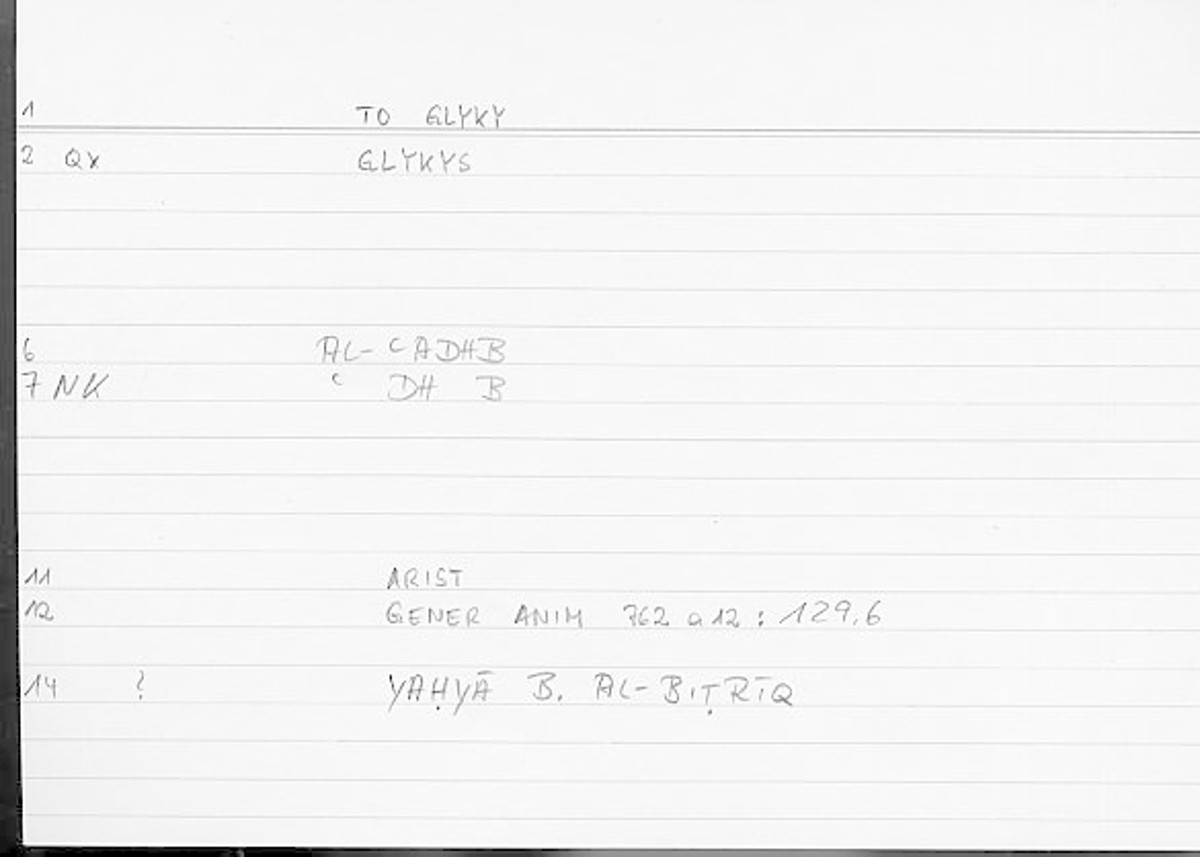 1 TO GLYKY
2 QX GLYKYS
6 AL-ʿADHB
7 NK ʿ DH B
11 ARIST
12 GENER ANIM 762 a 12 : 129,6
14 ? YAḤYĀ B. AL-BIṬRĪQ